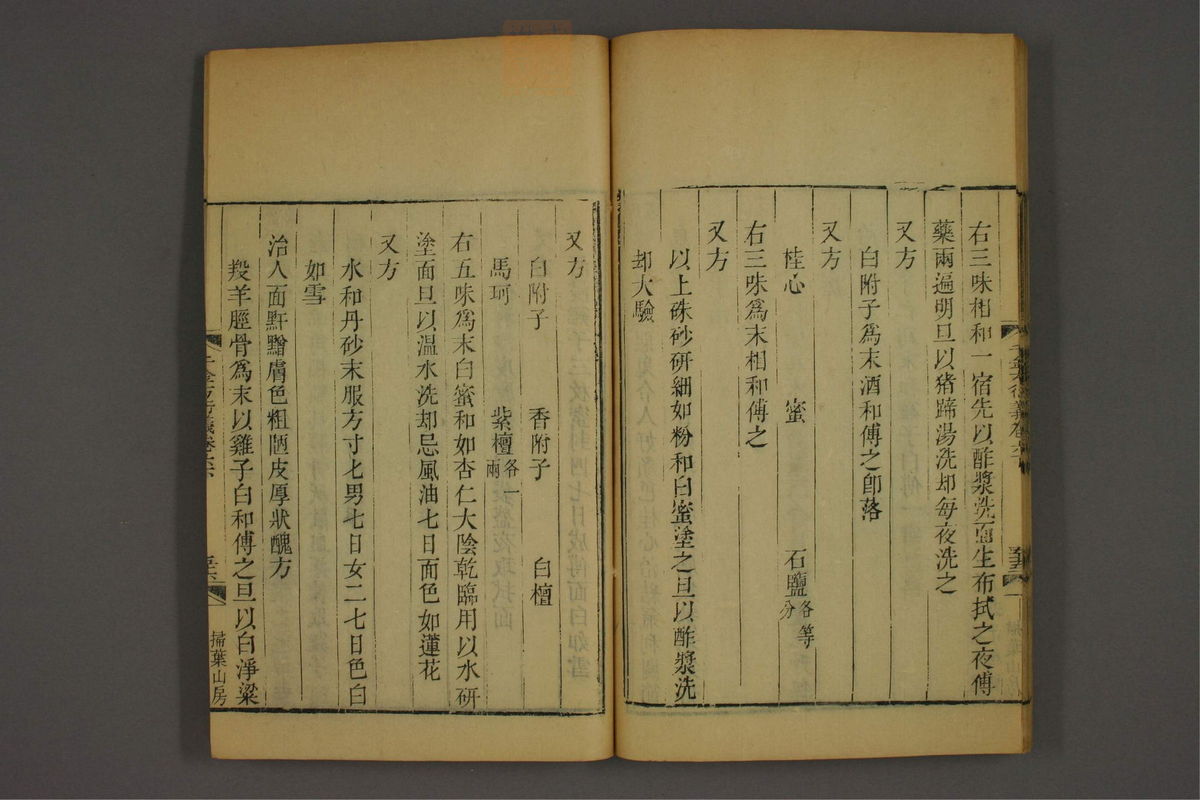 右三味相和一宿先以酢漿洗面生布拭之夜傅
藥兩遍明旦以猪蹄湯洗却每夜洗之
又方
白附子爲末酒和傅之卽落
又方
桂心 蜜 石鹽各等分
右三味爲末相和傅之
又方
以上硃砂研細如粉和白蜜塗之旦以酢漿洗
却大驗
又方
白附子 香附子 白檀
馬珂 紫檀各一兩
右五味爲末白蜜和如杏仁大陰乾臨用以水研
塗面旦以溫水洗却忌風油七日面色如蓮花
又方
水和丹砂末服方寸匕男七日女二七日色白
如雪
治人面䵟䵴膚色粗陋皮厚狀醜方
羖羊脛骨爲末以雞子白和傅之旦以白淨粱
千金方衍義卷六
掃葉山房